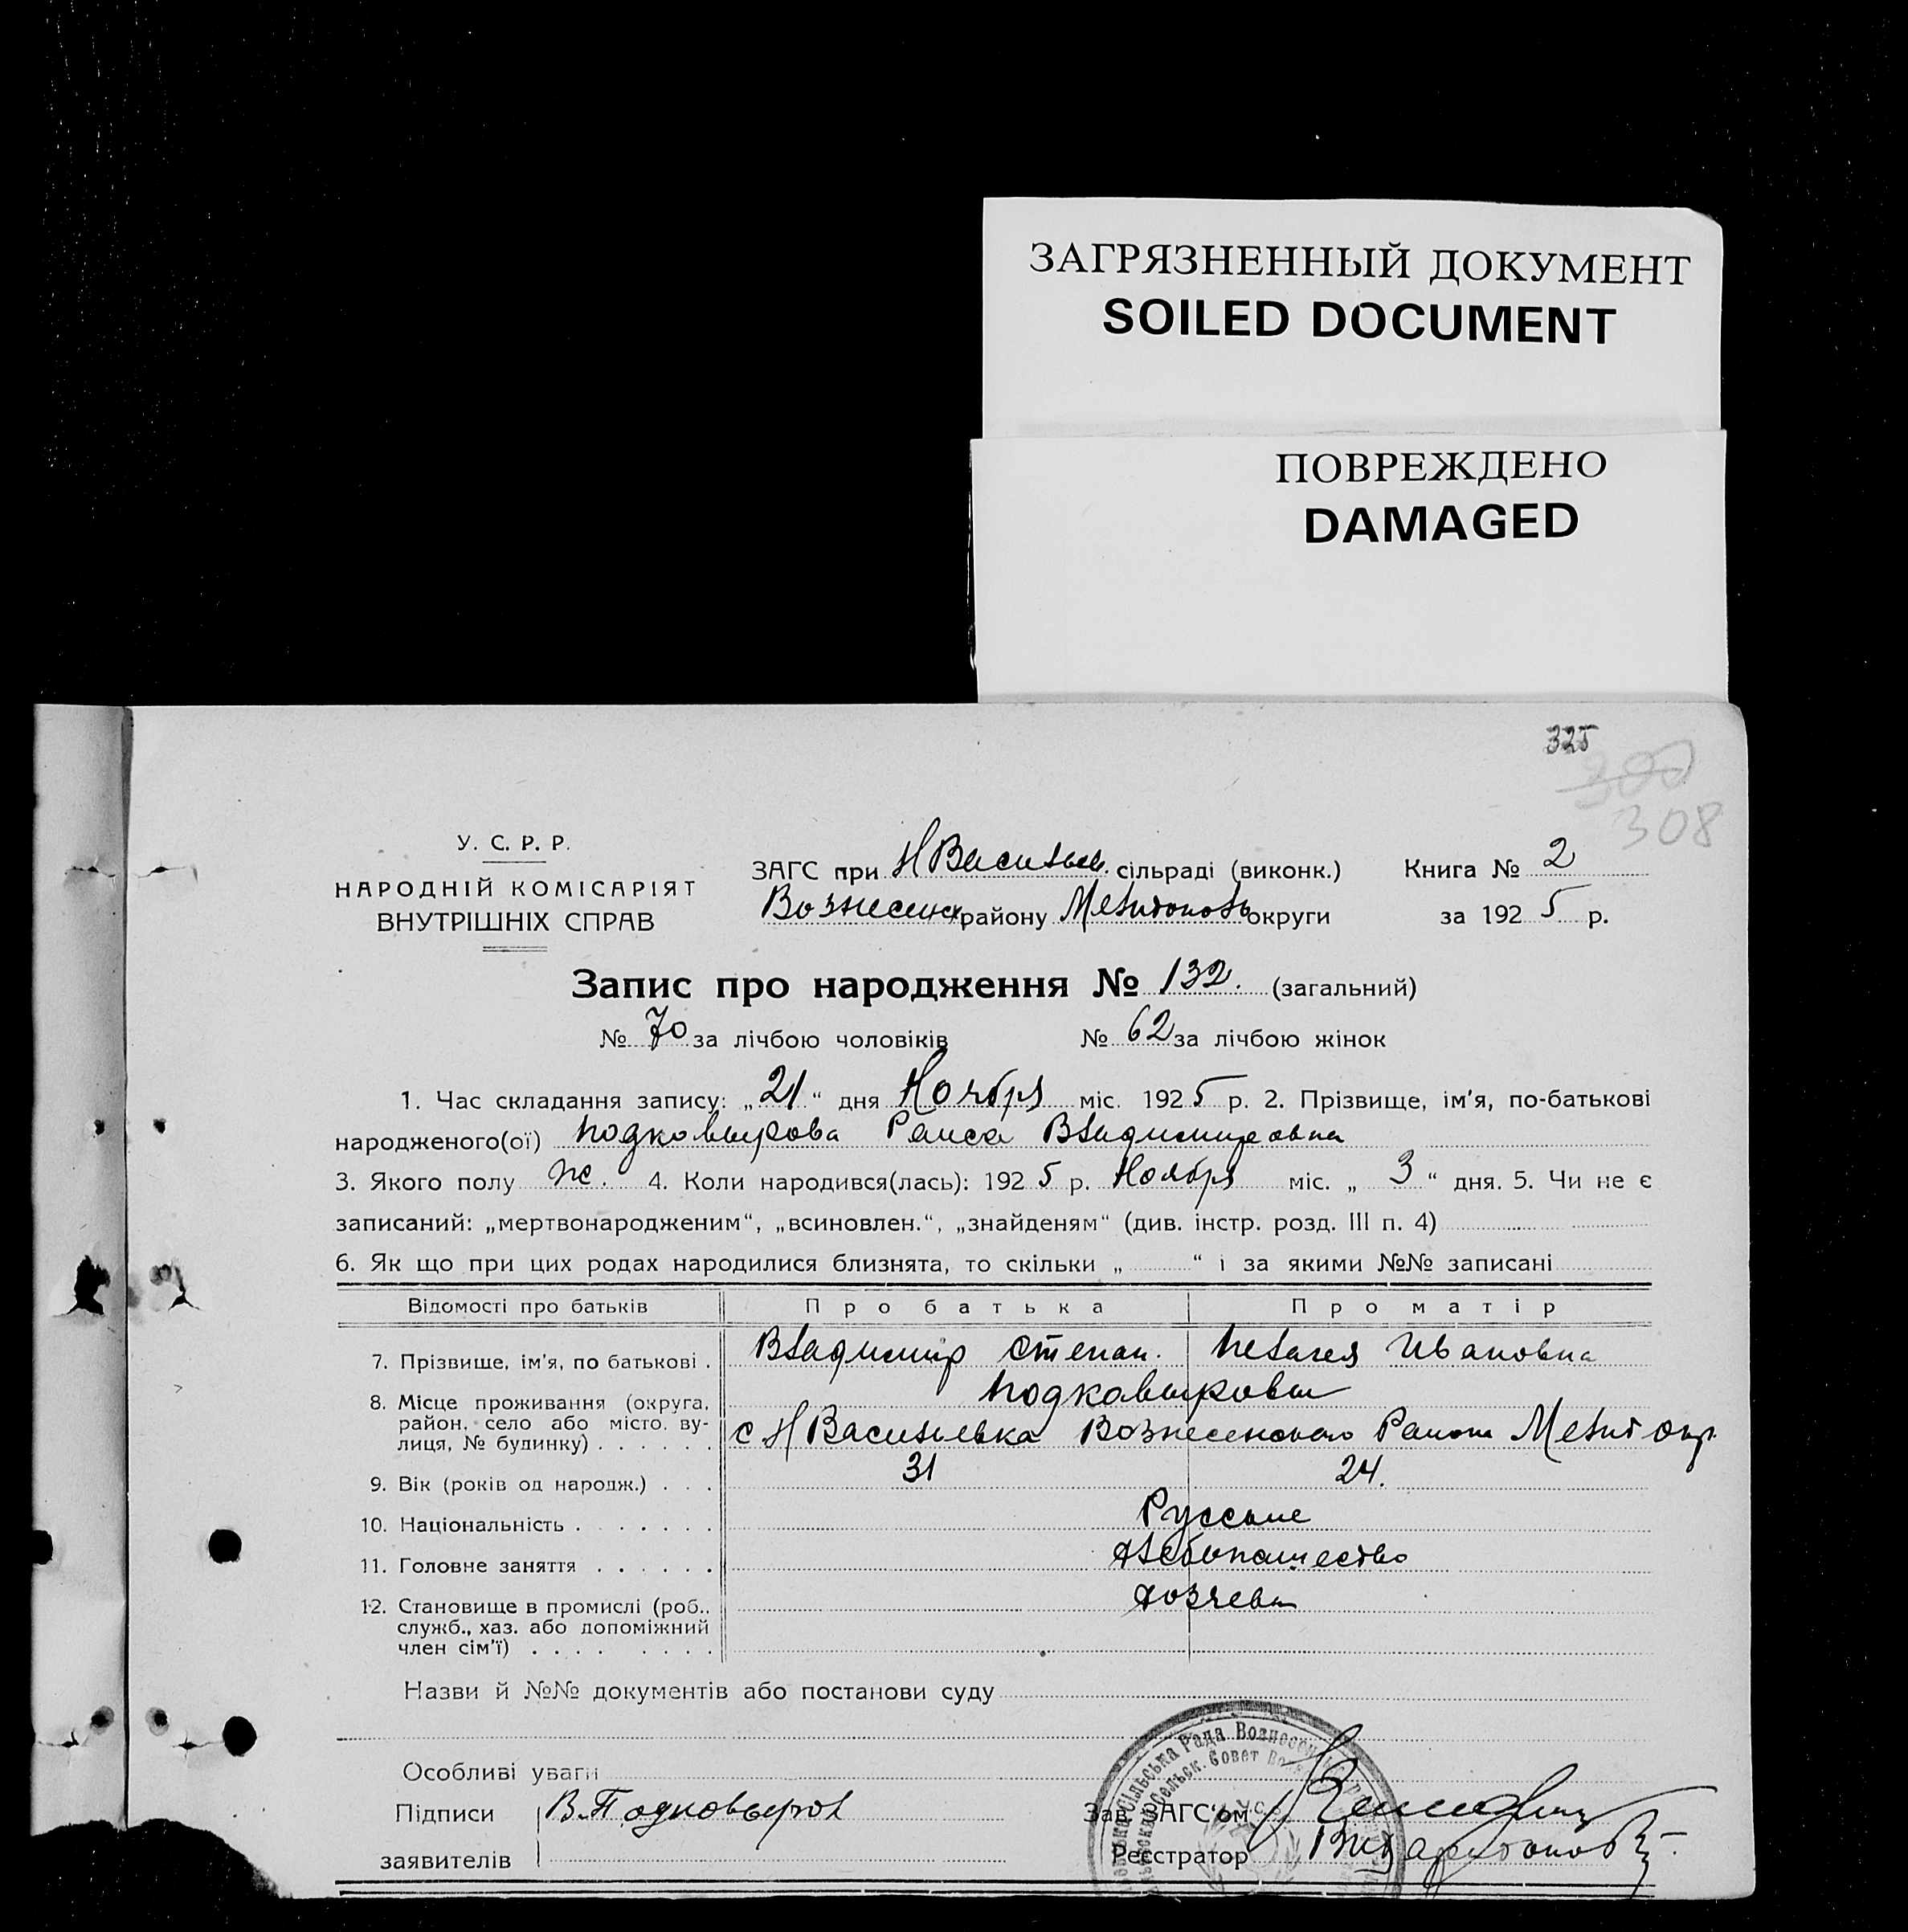 ЗАГРЯЗНЕННЫЙ ДОКУМЕНТ
SOILED DOCUMENT
ПОВРЕЖДЕНО
DAMAGED
325
300
308
У. С. Р. Р.
НАРОДНІЙ КОМІСАРІЯТ
ВНУТРІШНІХ СПРАВ
ЗАГС при НВасильев. сільраді (виконк.) Книга № 2
Вознесенск району Мелитополь округи за 1925 р.
Запис про народження № 132. (загальний)
№ 70 за лічбою чоловіків № 62 за лічбою жінок
1. Час складання запису: „21“ дня Ноября міс. 1925 р. 2. Прізвище, ім'я, по-батькові
народженого(ої) Подковырова Раиса Владимировна
3. Якого полу ж. 4. Коли народився(лась): 1925 р. Ноября міс. „3“ дня. 5. Чи не є
записаний: „мертвонародженим“, „всиновлен.“, „знайденям“ (див. інстр. розд. III п. 4)
6. Як що при цих родах народилися близнята, то скільки „ “ і за якими №№ записані
Відомості про батьків Про батька Про матір
7. Прізвище, ім'я, по батькові . Владимир Степан. Пелагея Ивановна
Подковыровы
8. Місце проживання (округа, район, село або місто, вулиця, № будинку) . . . . . . с. НВасильевка Вознесенского Району Мелит окр.
9. Вік (років од народж.) . . . 31 24.
10. Національність . . . . . . . Русские
11. Головне заняття . . . . . . Хлебопашество
12. Становище в промислі (роб., служб., хаз. або допоміжний член сім'ї) . . . . . . . . Хозяева
Назви й №№ документів або постанови суду
Особливі уваги
Підписи В.Подковыров
заявителів
Зав. ЗАГС'ом
Реєстратор ВХаритонов
сільська Рада Вознесен
Сельск. Совет Воз